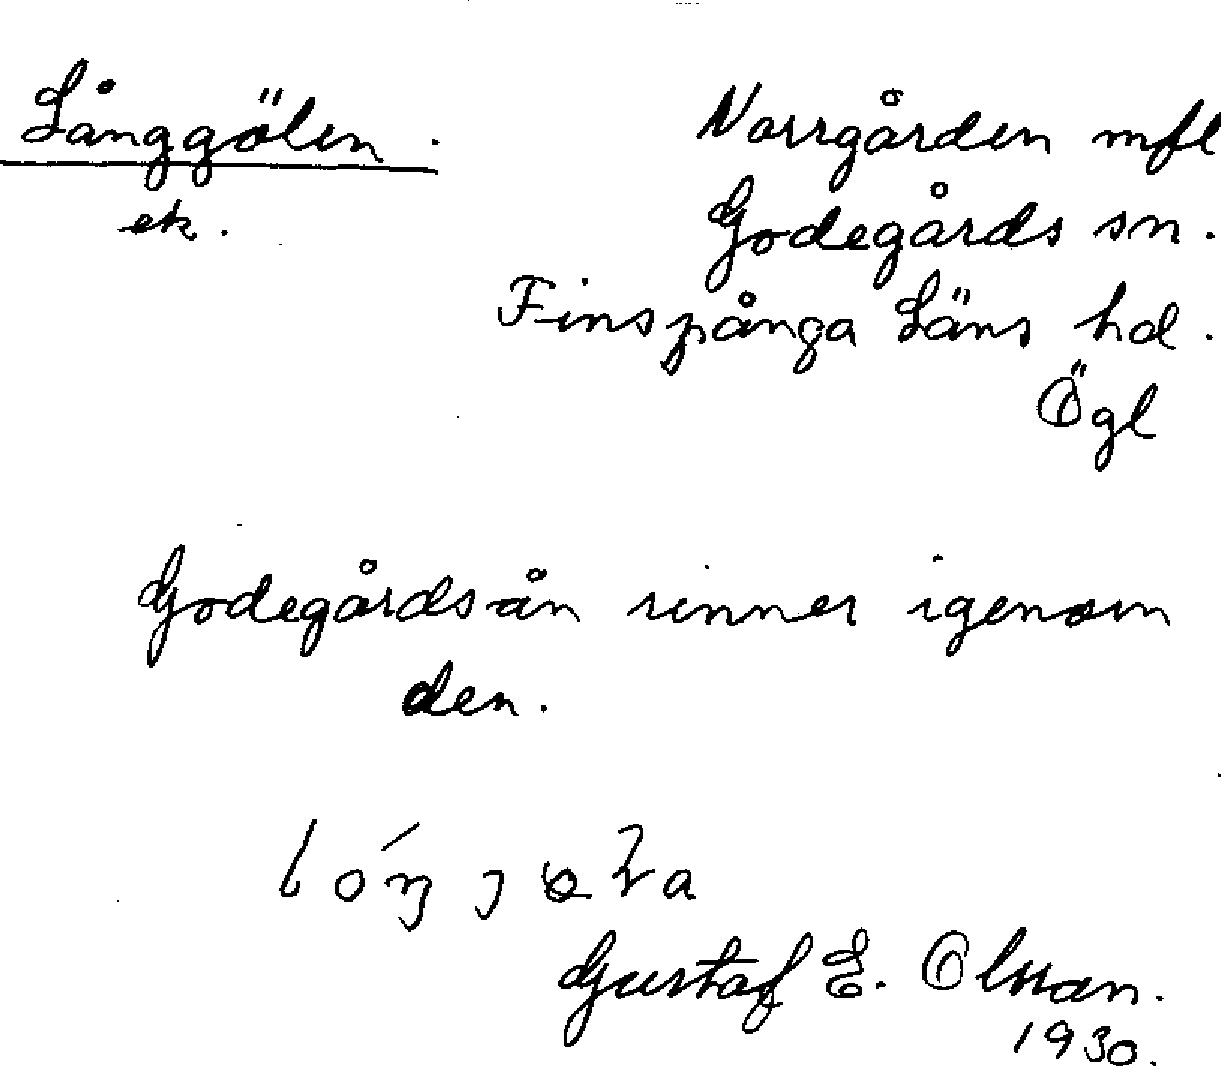 Långgölen.
ek.
Norrgården mfl
Godegårds sn.
Finspånga Läns hd.
Ögl
Godegårdsån rinner igenom
den.
Gustaf E. Olsson.
1930.